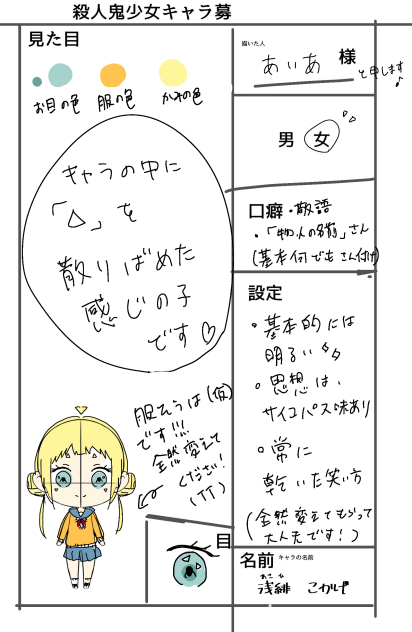 殺人鬼少女キャラ募
見た目
お目の色
服の色
かみの色
キャラの中に
「△」を
散りばめた
感じの子
です♡
服そうは(仮)
です!!!
全然変えて
ください!
目
描いた人
あいあ 様
と申します♪
男 女
口癖・敬語
・「物、人の名前」さん
(基本何でもさん付け)
設定
・基本的には
明るい
・思想は、
サイコパス味あり
・常に
乾いた笑い方
(全然変えてもらって
大丈夫です!)
名前 キャラの名前
あさひ
浅緋 こかげ